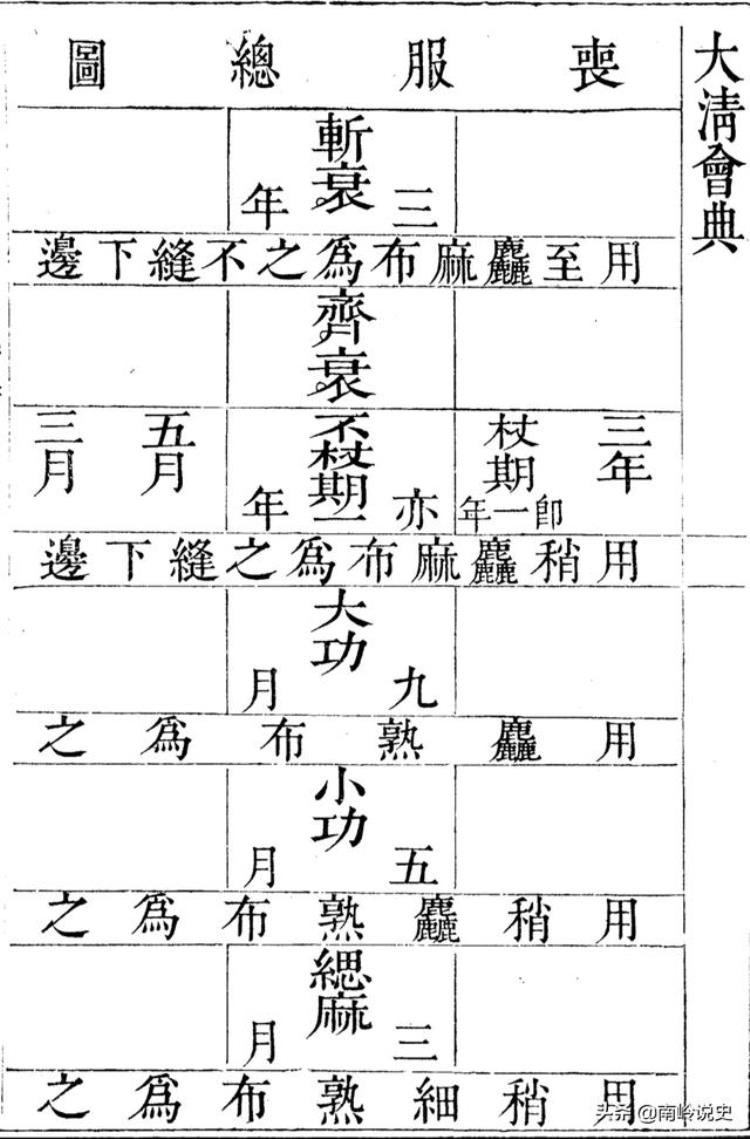 大淸會典
喪服總圖
斬衰
三年
用至麤麻布爲之不縫下邊
齊衰
三年
杖期
卽一年
不杖期
亦一年
五月
三月
用稍麤麻布爲之縫下邊
大功
九月
用麤熟布爲之
小功
五月
用稍麤熟布爲之
緦麻
三月
用稍細熟布爲之
头条 @南岭说史